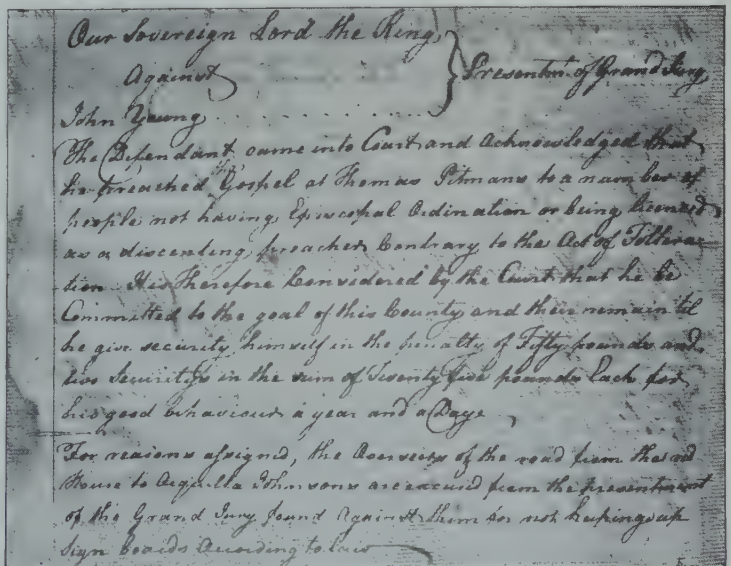 Our Sovereign Lord the King,
Against } Presentmt. of Grand Jury
John Young
The Defendant came into Court and Acknowledged that
he preached the Gospel at Thomas Pitmans to a number of
people not having Episcopal Ordination or being licenced
as a discenting preacher Contrary to the Act of Tollera-
tion It is Therefore Considered by the Court that he be
Committed to the goal of this County and their remain til
he give security himself in the penalty of Fifty pounds and
two Securitys in the sum of Twenty five pounds Each for
his good behaviour a year and a Daye
For reasons assigned, the Overseers of the road from the red
House to Acquilla Johnsons are excused from the presentment
of the Grand Jury found Against them for not keeping up
Sign boards Acording to law